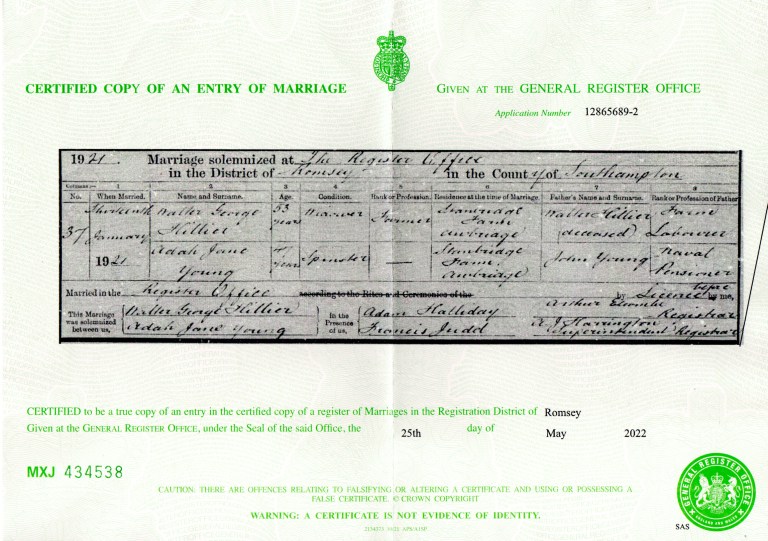 CERTIFIED COPY OF AN ENTRY OF MARRIAGE
GIVEN AT THE GENERAL REGISTER OFFICE
Application Number 12865689-2
1921. Marriage solemnized at The Register Office
in the District of Romsey in the County of Southampton
Columns:— 1 2 3 4 5 6 7 8
No. When Married. Name and Surname. Age. Condition. Rank or Profession. Residence at the time of Marriage. Father's Name and Surname. Rank or Profession of Father
37 Thirteenth January 1921
Walter George Hillier 53 years Widower Farmer Stanbridge Farm Awbridge Walter Hillier (deceased) Farm Labourer
Adah Jane Young years Spinster — Stanbridge Farm Awbridge John Young Naval Pensioner
Married in the Register Office according to the Rites and Ceremonies of the by Licence before by me,
This Marriage was solemnized between us,
Walter George Hillier
Adah Jane Young
In the Presence of us,
Adam Halliday
Francis Judd
Arthur Registrar
A J Harrington
Superintendent Registrar
CERTIFIED to be a true copy of an entry in the certified copy of a register of Marriages in the Registration District of Romsey
Given at the GENERAL REGISTER OFFICE, under the Seal of the said Office, the 25th day of May 2022
MXJ 434538
CAUTION: THERE ARE OFFENCES RELATING TO FALSIFYING OR ALTERING A CERTIFICATE AND USING OR POSSESSING A
FALSE CERTIFICATE. © CROWN COPYRIGHT
WARNING: A CERTIFICATE IS NOT EVIDENCE OF IDENTITY.
GENERAL REGISTER OFFICE
ENGLAND AND WALES
SAS